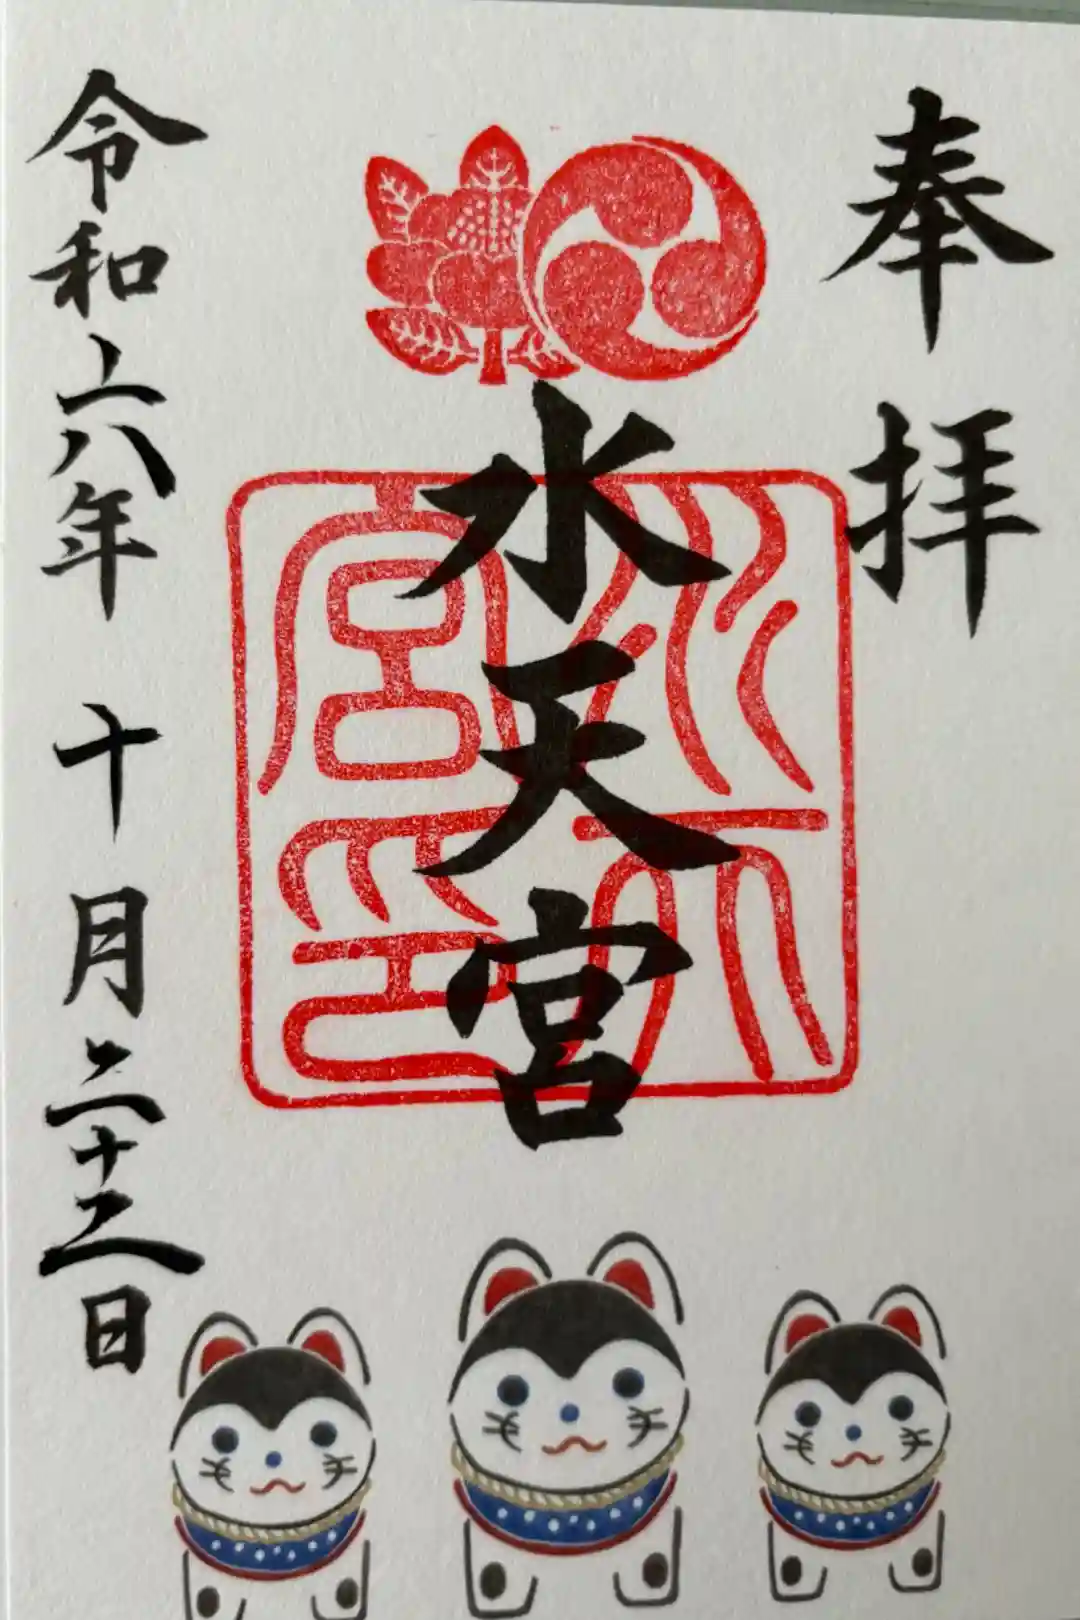 奉拝
水天宮
水天宮印
令和六年 十月二十二日